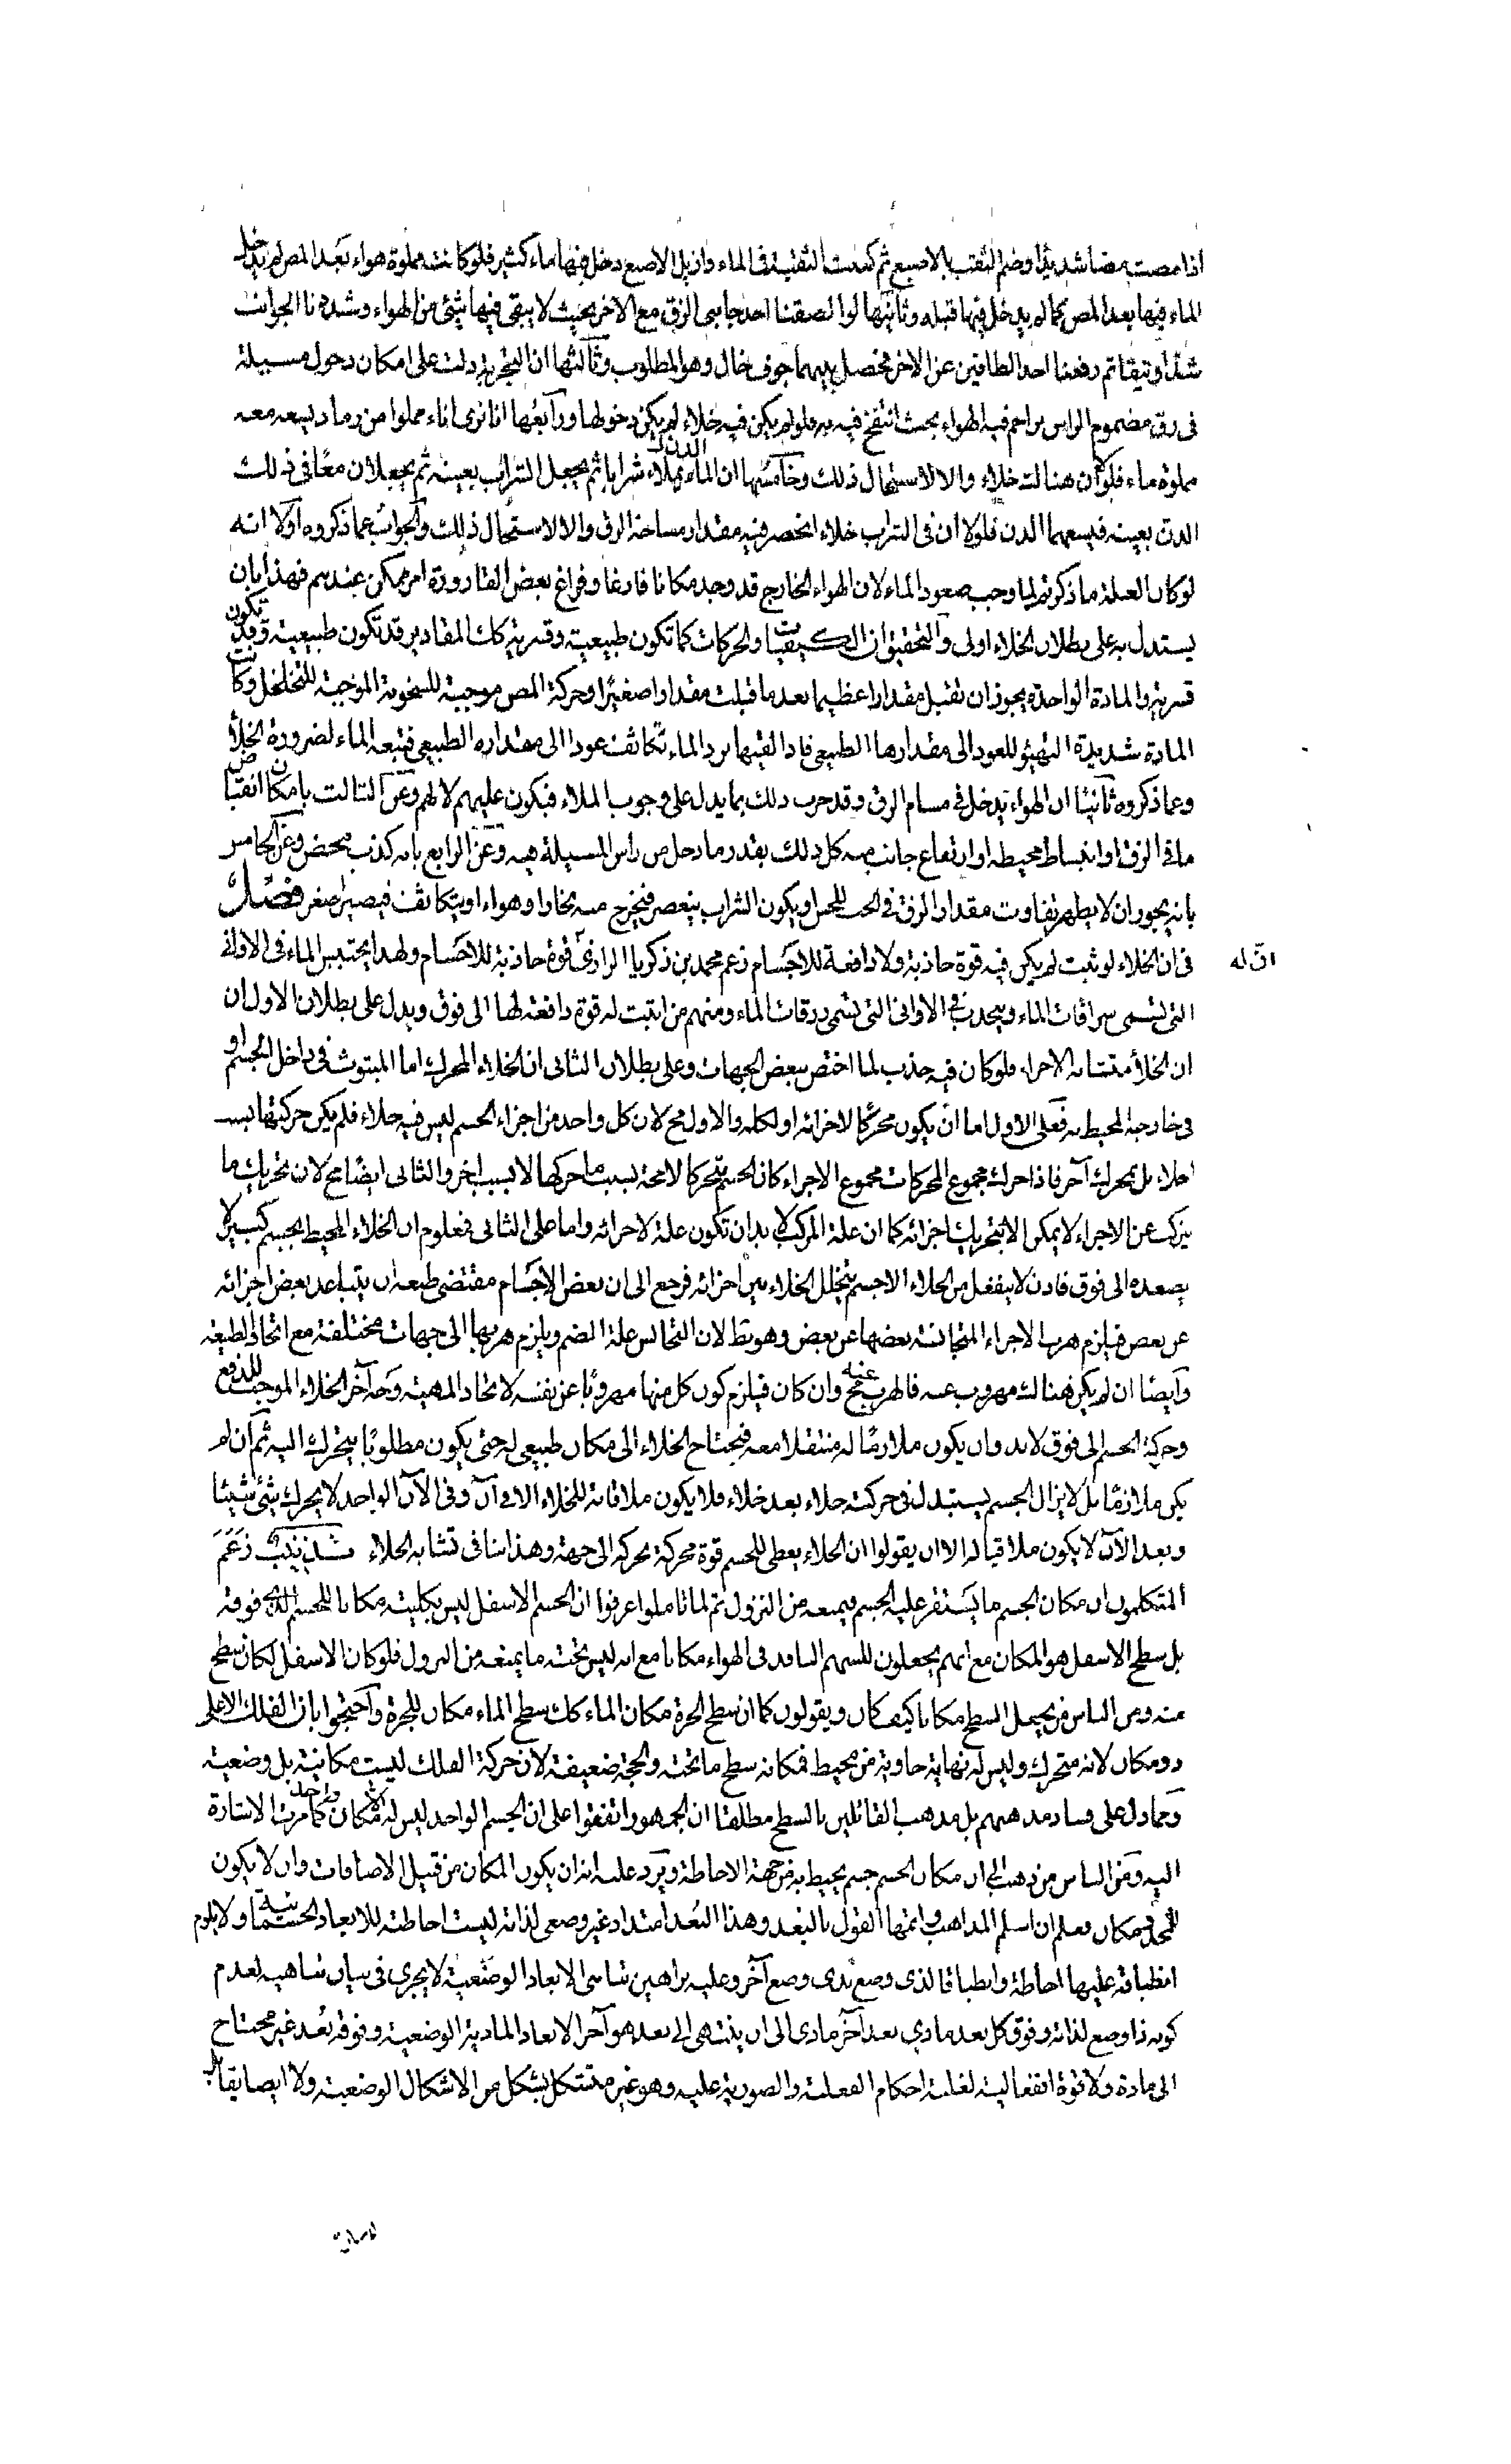 اذا مصت مصا شديدا وضم الثقب بالاصبع ثم كسعت الثقبة فى الماء وازيل الاصبع دخل فيها ماء كثير فلو كانت مملوة هواء بعد المص لم يدخل
الماء فيها بعد المص كما لم يدخل فيها قبله وثانيها لو الصقنا احد جانبى الزق مع الاخر بحيث لا يبقى فيها شئ من الهواء وشددنا الجوانب
شدا وثيقا ثم رفعنا احد الطاقين عن الاخر فحصل بينهما جوف خال وهو المطلوب وثالثها ان التجربة دلت على امكان دخول مسيلة
فى زق مضموم الراس مزاحم فيه الهواء بحيث انتفخ فيه به فلو لم يكن فيه خلاء لم يكن دخولها ورابعها انا نرى اناء مملوا من رماد يسعه معه
مملوة ماء فلو ان هنالك خلاء والا لاستحال ذلك وخامسها ان الدن يملاء شرابا ثم يجعل الشراب بعينه ثم يجعلان معا فى ذلك
الدن بعينه فيسعهما الدن فلولا ان فى الشراب خلاء انحصر فيه مقدار مساحة الزق والا لاستحال ذلك والجواب عما ذكروه اولا انه
لو كان العلة ما ذكرتم لما وجب صعود الماء لان الهواء الخارج قد وجد مكانا فارغا وفراغ بعض القارورة امر ممكن عندهم فهذا بان
يستدل به على بطلان الخلاء اولى والتحقيق ان الكيفيات والحركات كما تكون طبيعية وقسرية كك المقادير قد تكون طبيعية وقد تكون
قسرية والمادة الواحدة يجوز ان تقبل مقدارا عظيما بعد ما قبلت مقدارا صغيرا وحركة المص موجبة للسخونة الموجبة للتخلخل وكانت
المادة شديدة التهيؤ للعود الى مقدارها الطبيعى فاذا لقيها برد الماء تكاثف عودا الى مقداره الطبيعى فتبعه الماء لضرورة الخلأ
وعما ذكروه ثانيا ان الهواء يدخل فى مسام الزق وقد جرب ذلك بما يدل على وجوب الملاء فيكون عليهم لا لهم وعن الثالث بامكان انقباض
ما فى الزق او انبساط محيطه او ارتفاع جانب منه كل ذلك بقدر ما دخل من راس المسيلة فيه وعن الرابع بانه كذب محض وعن الخامس
بانه يجوز ان لا يظهر تفاوت مقدار الزق فى الحس او يكون الشراب ينعصر فيخرج منه بخارا وهواء او يتكاثف فيصير اصغر فصل
ان له
فى ان الخلاء لو ثبت لم يكن فيه قوة جاذبة ولا دافعة للاجسام زعم محمد بن زكريا الرازى قوة جاذبة للاجسام ولهذا يحتبس الماء فى الاوانى
التى تسمى سراقات الماء وينجذب فى الاوانى التى تسمى زراقات الماء ومنهم من اثبت له قوة دافعة لها الى فوق ويدل على بطلان الاول ان
ان الخلأ متشابه الاجزاء فلو كان فيه جذب لما اختص ببعض الجهات وعلى بطلان الثانى ان الخلاء المحرك اما المبثوث فى داخل الجسم او
فى خارجه المحيط به فعلى الاول اما ان يكون محركا لاجزائه او لكله والاول مح لان كل واحد من اجزاء الجسم ليس فيه خلاء فلم يكن حركتها بسبب
الخلاء بل بمحرك آخر فاذا حرك مجموع المحركات مجموع الاجزاء كان الجسم متحركا لا محة بسبب ما حركها لا بسبب اخر والثانى ايضا مح لان تحريك ما
يتركب عن الاجزاء لا يمكن الا بتحريك اجزائه كما ان علة المركب لا بد ان تكون علة لاجزائه واما على الثانى فمعلوم ان الخلاء المحيط بجسم كبير لا
يصعده الى فوق فاذن لا ينفعل من الخلاء الا جسم يتخلل الخلاء بين اجزائه فرجع الى ان بعض الاجسام مقتضى طبعه ان يتباعد بعض اجزائه
عن بعض فيلزم هرب الاجزاء المتجانسة بعضها عن بعض وهو بط لان التجانس علة الضم ويلزم هربها الى جهات مختلفة مع اتحاد الطبيعة
وايضا ان لم يكن هنالك مهروب عنه فالهرب عنه مح وان كان فيلزم كون كل منها مهروبا عن نفسه لاتحاد المهية وجه آخر الخلاء الموجب للدفع
وحركة الجسم الى فوق لابد وان يكون ملازما له منتقلا معه فيحتاج الخلاء الى مكان طبيعى له حتى يكون مطلوبا يتحرك اليه ثم ان لم
يكن ملازما بل لا يزال الجسم يستبدل فى حركته خلاء بعد خلاء فلا يكون ملاقاته للخلاء الا فى آن وفى الآن الواحد لا يحرك شئ شيئا
وبعد الآن لا يكون ملاقيا له الا ان يقولوا ان الخلاء يعطى للجسم قوة محركة تحركه الى جهة وهذا ينافى تشابه الخلاء تذنيب زعم
المتكلمون ان مكان الجسم ما يستقر عليه الجسم فيمنعه من النزول ثم لما تاملوا عرفوا ان الجسم الاسفل ليس بكليته مكانا للجسم الذى فوقه
بل سطح الاسفل هو المكان مع انهم يجعلون للسهم النافذ فى الهواء مكانا مع انه ليس تحته ما يمنعه من النزول فلو كان الاسفل لكان سطح
منه ومن الناس من يجعل السطح مكانا كيف كان ويقولون كما ان سطح الجرة مكان الماء كك سطح الماء مكان للجرة واحتجوا بان الفلك الاعلى
ذو مكان لانه متحرك وليس له نهاية حاوية من محيط فمكانه سطح ما تحته والحجة ضعيفة لان حركة الفلك ليست مكانية بل وضعية
ومما دل على فساد مذهبهم بل مذهب القائلين بالسطح مطلقا ان الجمهور اتفقوا على ان الجسم الواحد ليس له الا مكان واحد كما مرت الاشارة
اليه ومن الناس من ذهب الى ان مكان الجسم جسم يحيط به من جهة الاحاطة ويرد عليه انه ان يكون المكان من قبيل الاضافات وان لا يكون
للمحدد مكان فعلم ان اسلم المذاهب واتمها القول بالبعد وهذا البعد امتداد غير وضعى لذاته ليست احاطته للابعاد الجسمانية ولا يلزم
انطباقه عليها احاطة وانطباقا لذى وضع بذى وضع آخر وعليه براهين تناهى الابعاد الوضعية لا يجرى فى بيان تناهيه لعدم
كونه ذا وضع لذاته وفوق كل بعد مادى بعد آخر مادى الى ان ينتهى الى بعد هو آخر الابعاد المادية الوضعية وفوقه بعد غير محتاج
الى مادة ولا قوة انفعالية لغلبة احكام الفعلية والصورية عليه وهو غير متشكل بشكل من الاشكال الوضعية ولا ايضا يقال